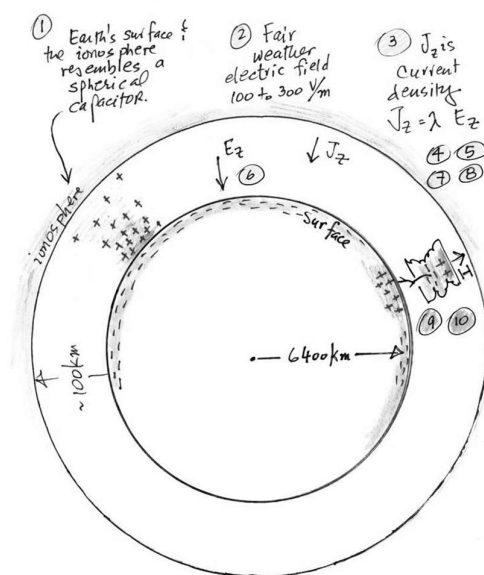 ① Earth's surface &
the ionosphere
resembles a
spherical
capacitor.
② Fair
weather
electric field
100 to 300 V/m
③ J_z is
current
density
J_z = λ E_z
④ ⑤
⑦ ⑧
E_z
⑥
J_z
ionosphere
surface
I
⑨ ⑩
6400 km
~100 km